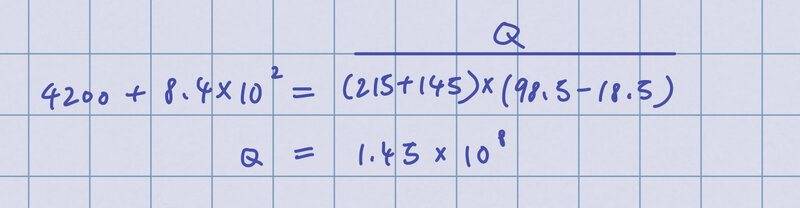 Q
4200 + 8.4×10² = (215+145)×(98.5-18.5)
Q = 1.45 × 10⁸